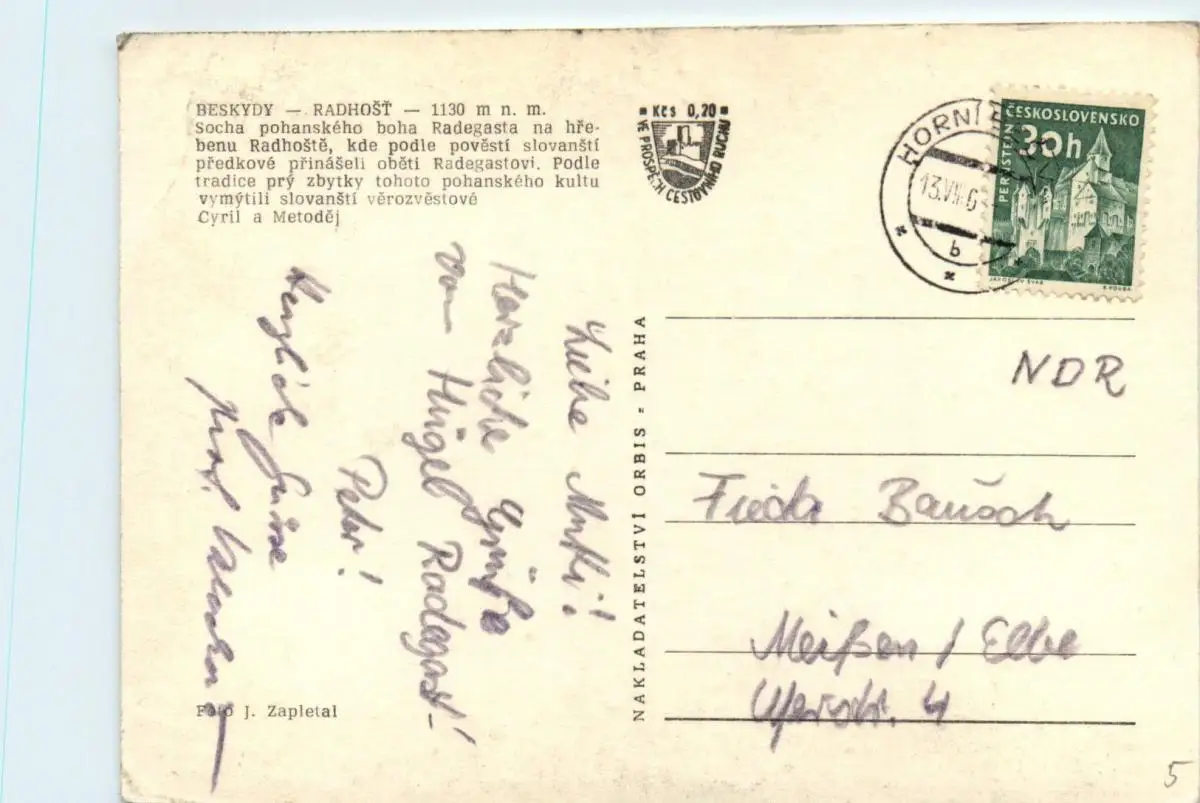 BESKYDY — RADHOŠŤ — 1130 m n. m.
Socha pohanského boha Radegasta na hře-
benu Radhoště, kde podle pověstí slovanští
předkové přinášeli oběti Radegastovi. Podle
tradice prý zbytky tohoto pohanského kultu
vymýtili slovanští věrozvěstové
Cyril a Metoděj
Kčs 0,20
VE PROSPĚCH CESTOVNÍHO RUCHU
HORNÍ
13.VII.6
b
ČESKOSLOVENSKO
30h
PERNŠTEJN
JAROSLAV ŠVÁB
Liebe Mutti!
Herzliche Grüße
vom Hügel Radegast!
Peter!
Herzliche Grüsse
NAKLADATELSTVÍ ORBIS - PRAHA
NDR
Frieda Bausch
Meißen / Elbe
Uferstr. 4
Foto J. Zapletal
5